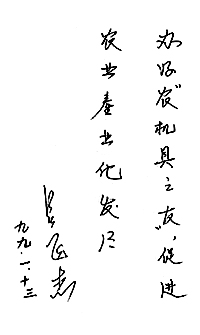 办好“农机具之友”，促进
农业产业化发展
九九.一.十三